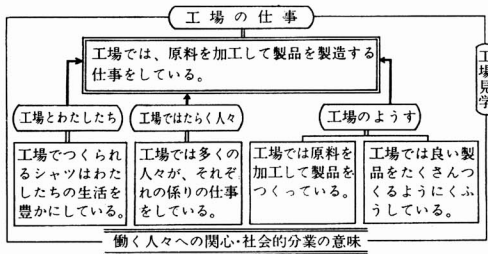 工場の仕事
工場では、原料を加工して製品を製造する
仕事をしている。
工場見学
工場とわたしたち
工場ではたらく人々
工場のようす
工場でつくられ
るシャツはわた
したちの生活を
豊かにしている。
工場では多くの
人々が、それぞ
れの係りの仕事
をしている。
工場では原料を
加工して製品を
つくっている。
工場では良い製
品をたくさんつ
くるようにくふ
うしている。
働く人々への関心・社会的分業の意味